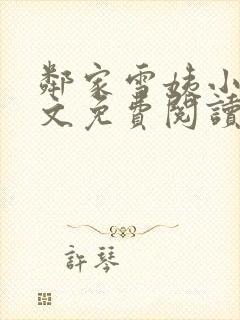 鄰家雪姨小
文免費閱讀
許琴